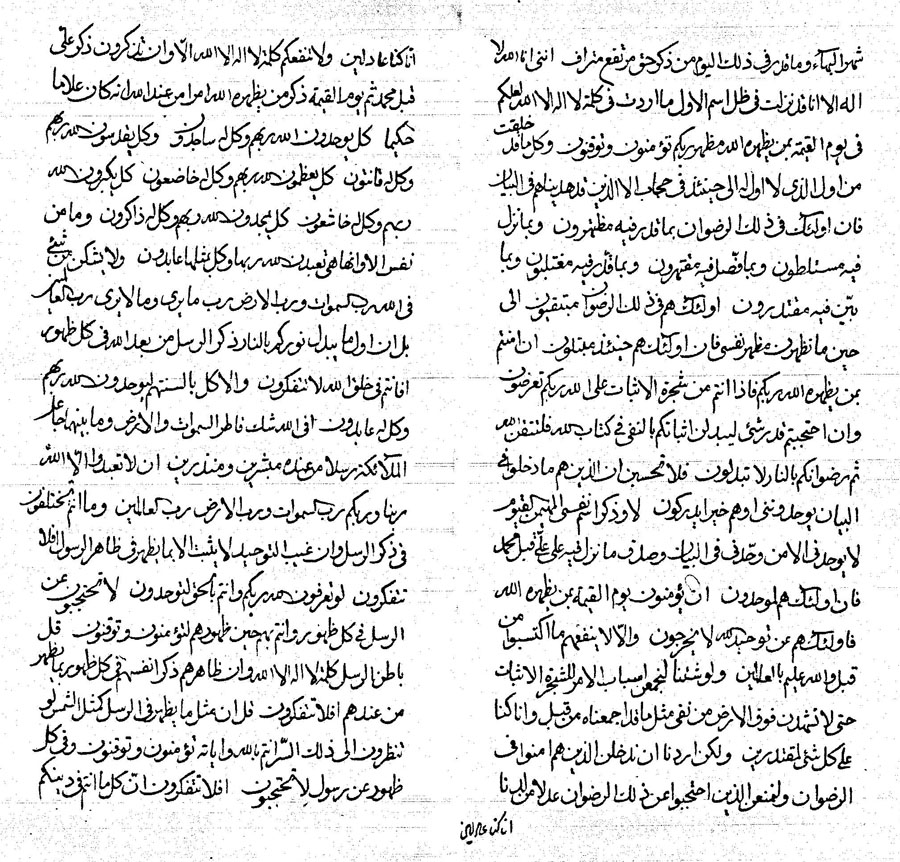 شهر البهاء وما قدر فى ذلك اليوم من ذكر حق مرتفع متراف اننى انا الله لا
اله الا انا قد نزلت فى ظل اسم الاول ما اردت فى كلمة لا اله الا الله لعلكم
فى يوم القيمة بمن يظهره الله مظهر ربكم تؤمنون وتوقنون وكل ما قد خلقت
من اول الذى لا اول له الى حينئذ فى حجاب الا الذين قد هديناهم فى البيان
فان اولئك فى ذلك الرضوان بما قدر فيه مظتهرون وبما نزل
فيه مستلطون وبما فصل فيه مفتهرون وبما قدر فيه مغتلبون وبما
بين فيه مقتدرون اولئك هم فى ذلك الرضوان مبتقيون الى
حين ما تظهرن مظهر نفسى فان اولئك هم حينئذ مبتلون ان امنتم
بمن يظهره الله ربكم فاذا انتم من شجرة الاثبات على الله ربكم تعرضون
وان احتجبتم قدر شئ ليبدلن اثباتكم بالنفى فى كتاب الله فلتتقن الله
ثم رضوانكم بالنار لا تبدلون فلا تحسبن ان الذين هم ما دخلوا فى
البيان يوحدوننى او هم خيرا يدركون لا وذكر نفسى المهيمن القيوم
لا يوحدنى الا من وحدنى فى البيان وصدق ما نزل فيه على على قبل محمد
فان اولئك هم لموحدون ان يؤمنون يوم القيمة بمن يظهره الله
فاولئك هم عن توحيد الله لا يخرجون والا لا ينفعهم ما اكتسبوا من
قبل والله عليم بالعالمين ولو شئنا لنجمعن اسباب الامر لشجرة الاثبات
حتى لا تشهدن فوق الارض من نفى مثل ما قد اجمعناه من قبل وانا كنا
على كل شئ لمقتدرين ولكن اردنا ان ندخلن الذين هم امنوا فى
الرضوان ولنمنعن الذين احتجبوا عن ذلك الرضوان عدلا من لدنا
انا كنا عادلين
انا كنا عادلين ولا تنفعكم كلمة لا اله الا الله الا وان تذكرون ذكر على
قبل محمد ثم يوم القيمة ذكر من يظهره الله امرا من عند الله انه كان علاما
حكيما كل يوحدون الله ربهم وكل له ساجدون وكل يقدسون الله ربهم
وكل له قانتون كل يعظمون الله ربهم وكل له خاضعون كل يكبرون الله
ربهم وكل له خاشعون كل يمجدون الله ربهم وكل له ذاكرون وما من
نفس الا وانها هى تعبدن الله ربها وكل بمثلها عابدون ولا يشكن من شئ
فى الله رب السموات ورب الارض رب ما يرى وما لا يرى رب العالمين
بل ان اول ما يبدل نوركم بالنار ذكر الرسل من بعد الله فى كل ظهور
افانتم فى خلق الله لا تتفكرون والا كل بالسنتهم ليوحدون الله ربهم
وكل له عابدون افى الله شك فاطر السموات والارض وما بينهما جاعل
الملائكة رسلا من عنده مبشرين ومنذرين ان لا تعبدوا الا الله
ربنا وربكم رب السموات ورب الارض رب العالمين وما انتم مختلفون
فى ذكر الرسل وان غيب التوحيد لا يثبت الا بما يظهر فى ظاهر الرسول افلا
تتفكرون لو تعرفون الله ربكم وانتم بالحق لتوحدون لا تحتجبون عن
الرسل فى كل ظهور وانتم بهم حين ظهورهم لتؤمنون وتوقنون قل
باطن الرسل كلمة لا اله الا الله وان ظاهرهم ذكر انفسهم فى كل ظهور بما يظهر
من عندهم افلا تتفكرون قل ان مثل ما يظهر فى الرسل كمثل الشمس لو
تنظرون الى ذلك السر انتم بالله واياته تؤمنون وتوقنون وفى كل
ظهور عن رسول لا تحتجبون افلا تتفكرون ان كل ما انتم فى دينكم